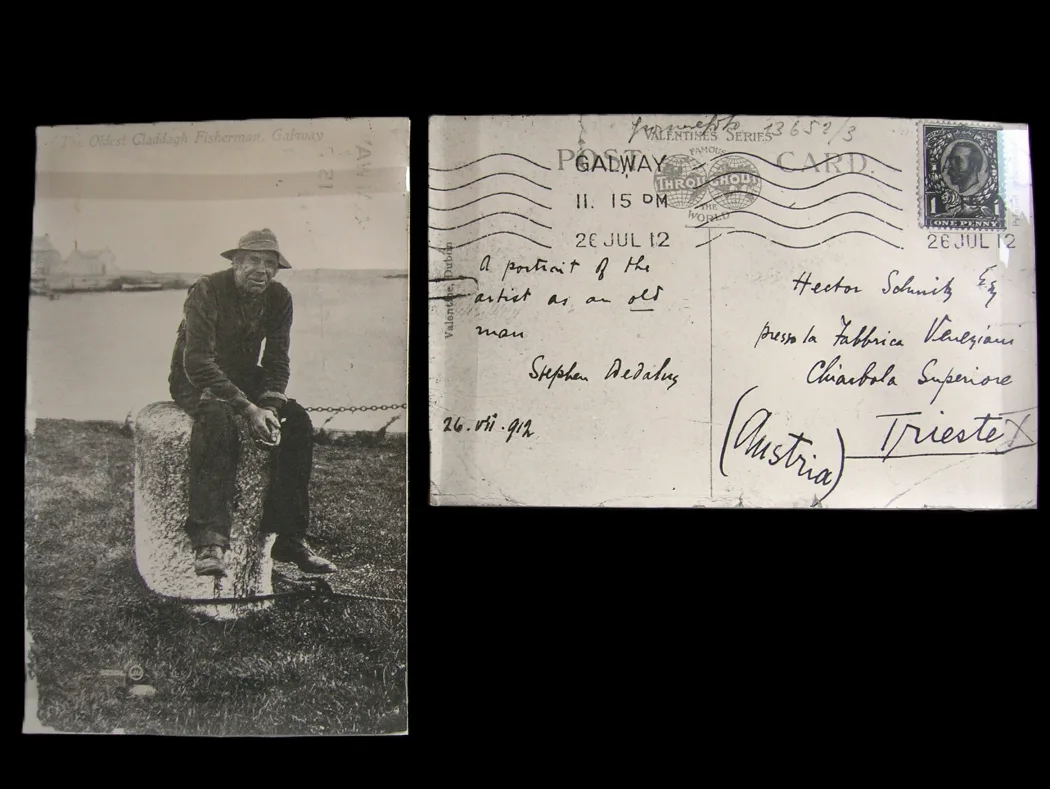 The Oldest Claddagh Fisherman, Galway
23652/3
VALENTINES SERIES
POST CARD.
FAMOUS
THROUGHOUT
THE
WORLD
GALWAY
11. 15 PM
26 JUL 12
26 JUL 12
1 1
ONE PENNY
Valentine, Dublin
A portrait of the
artist as an old
man
Stephen Dedalus
26.vii.912
Hector Schmitz Esq
presso la Fabbrica Veneziani
Chiarbola Superiore
Trieste
(Austria)